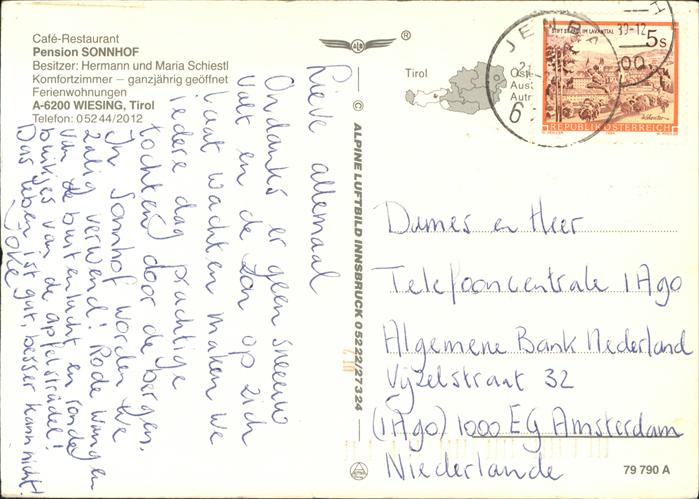 Café-Restaurant
Pension SONNHOF
Besitzer: Hermann und Maria Schiestl
Komfortzimmer – ganzjährig geöffnet
Ferienwohnungen
A-6200 WIESING, Tirol
Telefon: 05244/2012
Lieve allemaal
Ondanks er geen sneeuw
valt en de zon op zich
laat wachten maken we
iedere dag prachtige
tochten door de bergen.
In Sonnhof worden we
zalig verwend! Rode wangen
van de buitenlucht en ronde
buikjes van de apfelstrüdel!
Das leben ist gut, besser kann nicht!
Joke
®
Tirol
Öst
Aust
Autr
© ALPINE LUFTBILD INNSBRUCK 05222/27324
JENB
39-12
STIFT ST. PAUL IM LAVANTTAL
5s
REPUBLIK ÖSTERREICH
Dames en Heer
Telefooncentrale 1Ago
Algemene Bank Nederland
Vijzelstraat 32
(1Ago) 1000 EG Amsterdam
Niederlande
79 790 A